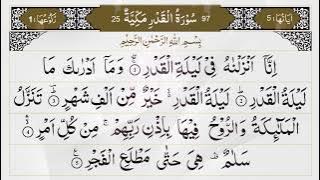 اٰیَاتُهَا: 5 سُوْرَةُ الْقَدْرِ مَكِّيَّةٌ 97 25 رُكُوْعُهَا: 1
بِسْمِ اللّٰهِ الرَّحْمٰنِ الرَّحِيْمِ
اِنَّاۤ اَنْزَلْنٰهُ فِیْ لَیْلَةِ الْقَدْرِ ۝۱ وَمَاۤ اَدْرٰىكَ مَا
لَیْلَةُ الْقَدْرِ ۝۲ لَیْلَةُ الْقَدْرِ خَیْرٌ مِّنْ اَلْفِ شَهْرٍ ۝۳ تَنَزَّلُ
الْمَلٰٓىِٕكَةُ وَالرُّوْحُ فِیْهَا بِاِذْنِ رَبِّهِمْ مِّنْ كُلِّ اَمْرٍ ۝۴
سَلٰمٌ هِیَ حَتّٰی مَطْلَعِ الْفَجْرِ ۝۵